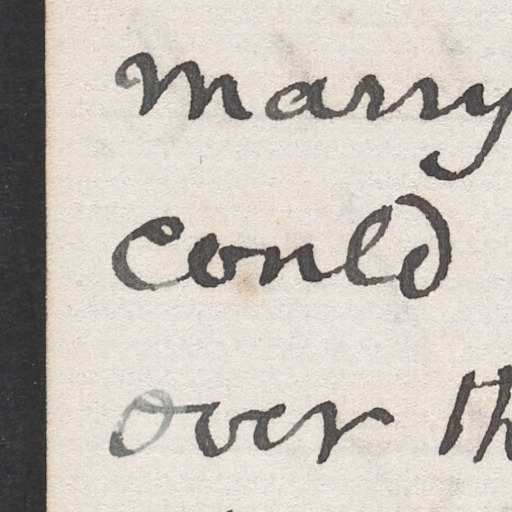 marry
could
over th